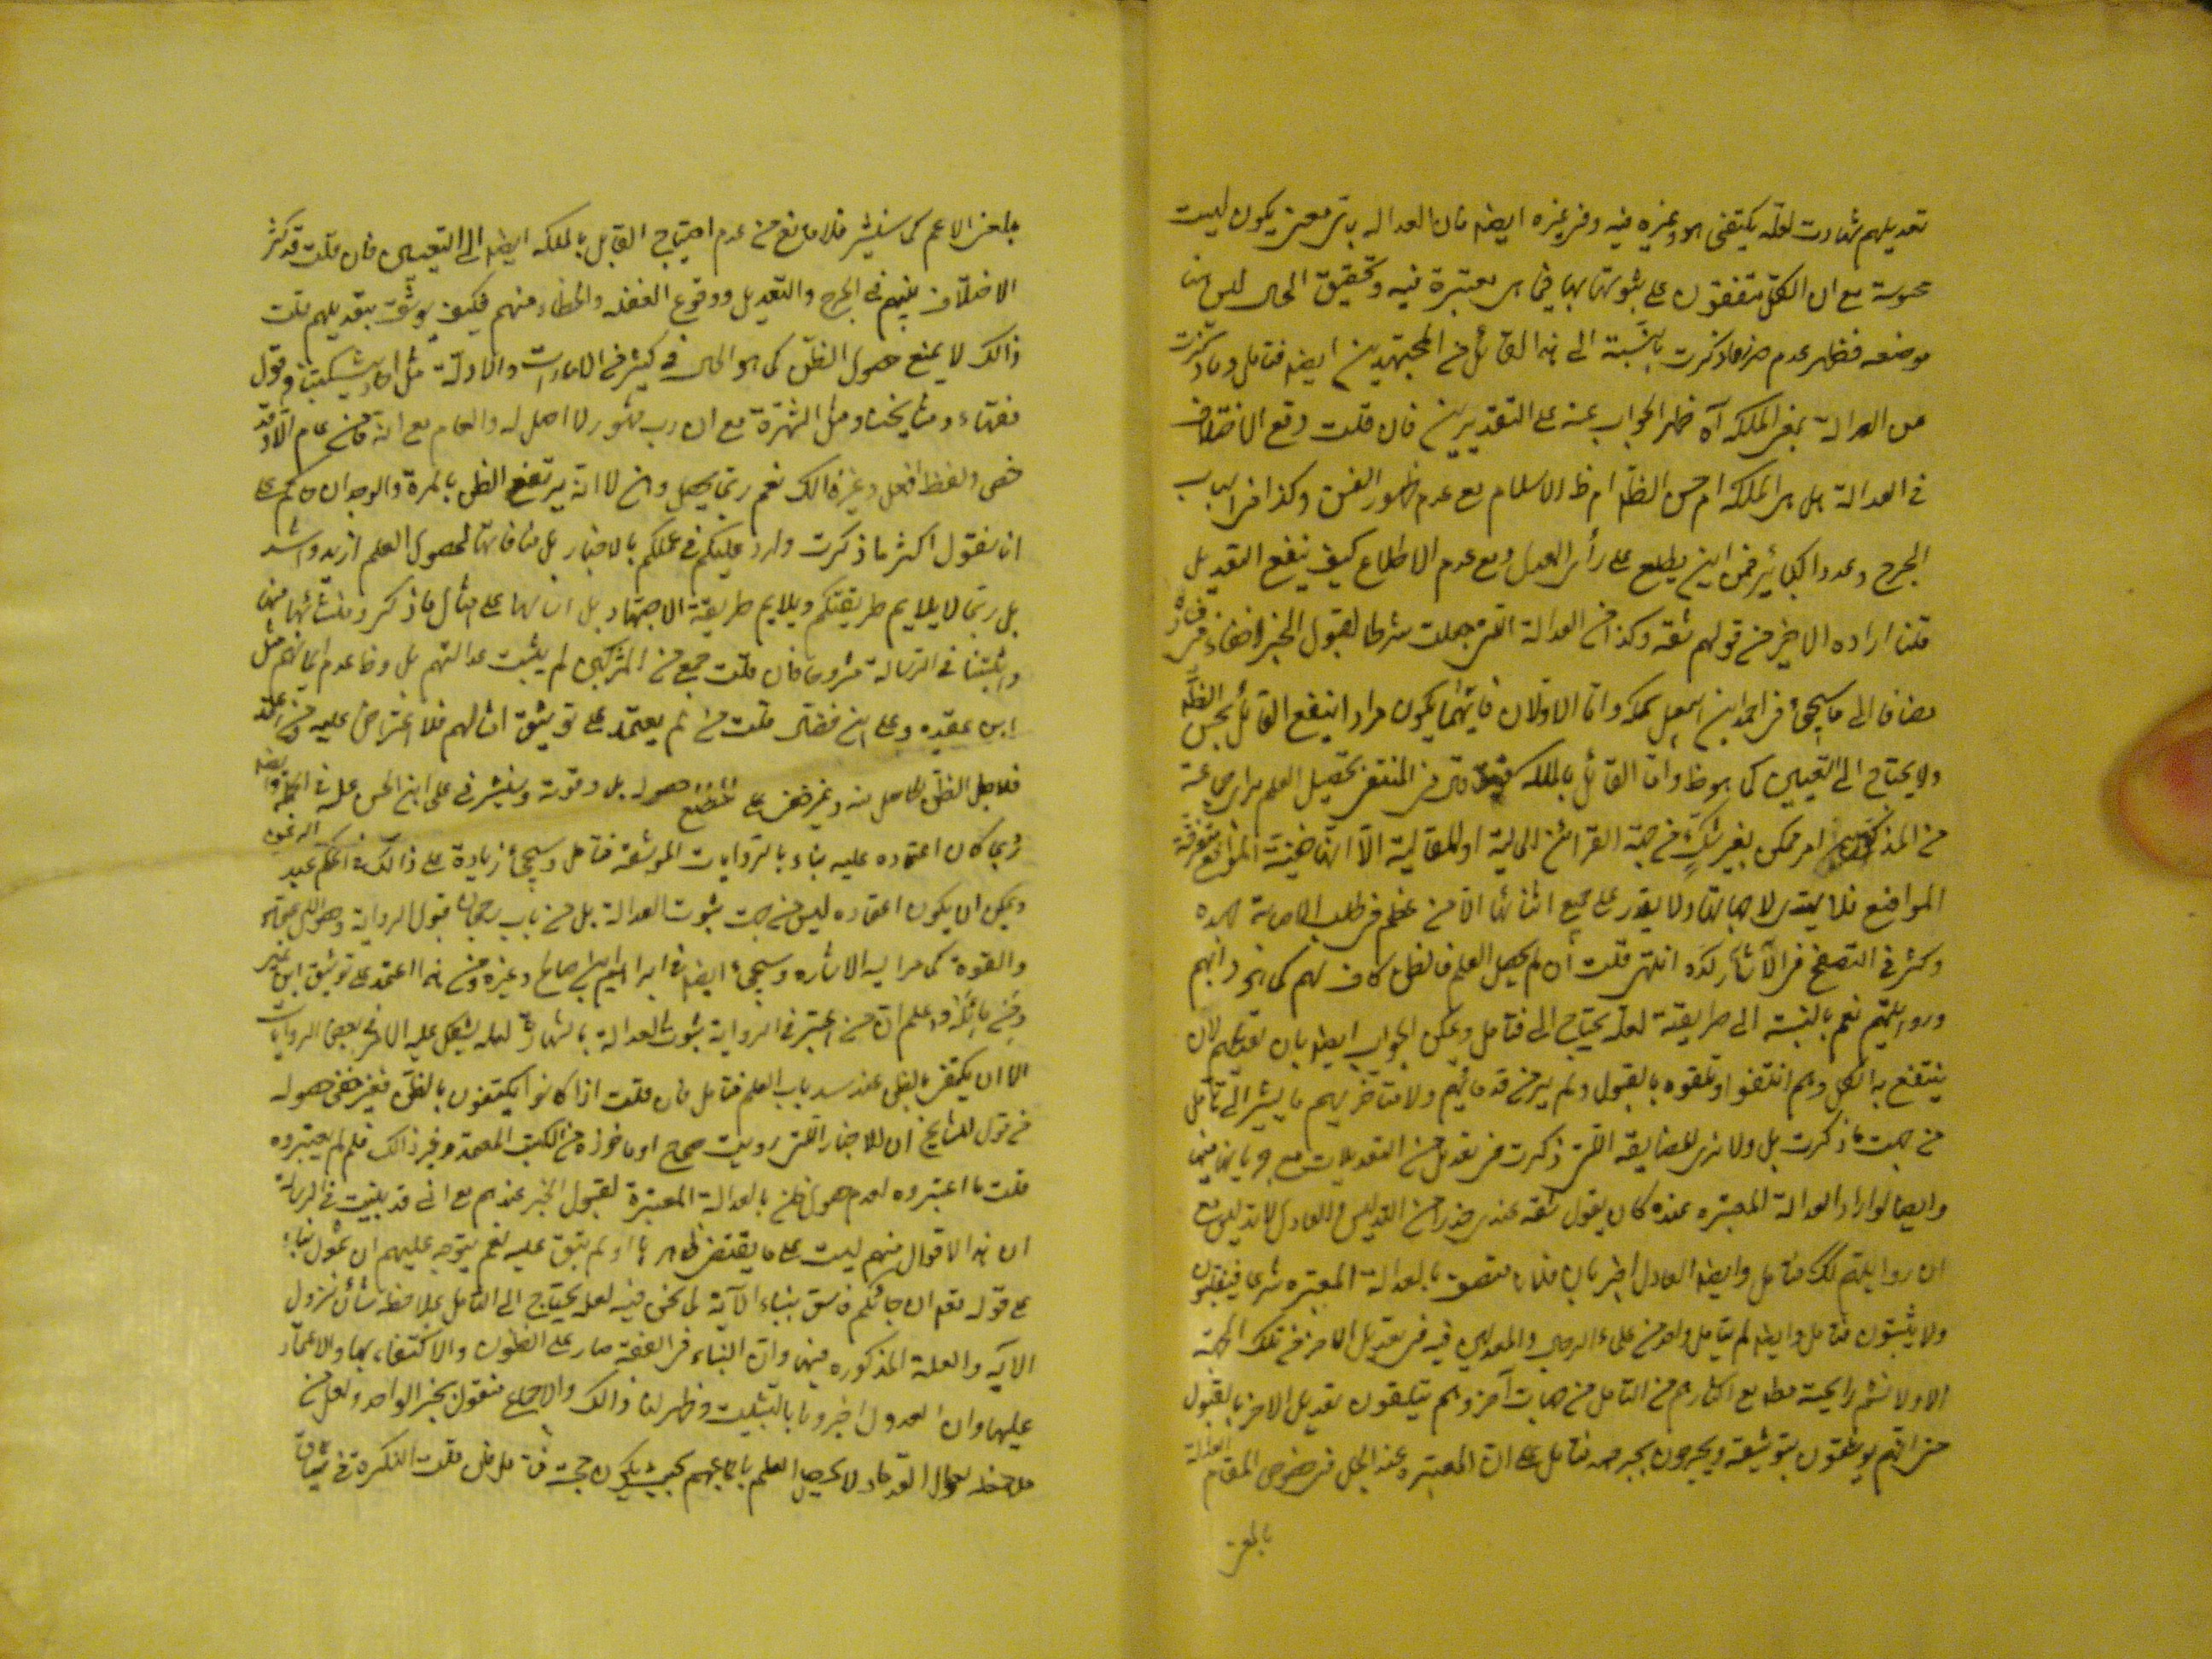 تعديلهم شهادت لعلّه يكتفى هو وغيره فيه وفى غيره ايضا فان العداله باىّ معنى يكون ليست
محسوسة مع ان الكلّ متفقون على ثبوتها بها فيما هى معتبرة فيه وتحقيق الحال ليس هنا
موضعه فظهر عدم ضرر ما ذكرت بالنسبة الى هذا القائل من المجتهدين ايضا فتامل وما ذكرت
من العدالة بمعنى الملكه آه ظهر الجواب عنه على التقديرين فان قلت وقع الاختلاف
فى العدالة هل هى الملكه ام حسن الظاهر ام ظاهر الاسلام مع عدم ظهور الفسق وكذا فى اسباب
الجرح وعدد الكبائر فمن اين يطلع على رأى المعدل ومع عدم الاطلاع كيف ينفع التعديل
قلنا ارادة الاخير من قولهم ثقه وكذا من العدالة التى جعلت شرطا لقبول الخبر
مضافا الى ما سيجئ فى احمد ابن اسمعيل بن سمكه وامّا الاوّلان فايّهما يكون مرادا ينفع القائل بحسن الظاهر
ولا يحتاج الى التعيين كما هو ظاهر وامّا القائل بالملكه فقد قال فى المنتقى تحصيل العلم براى جماعة
من المذكّين امر ممكن بغير شكّ من جهة القرائن الحالية او المقالية الّا انّها خفيّة المواقع متفرقة
المواضع فلا يهتدى لا جهاتها ولا يقدر على جميع اشتاتها الّا من عظم فى طلب الاصابة جهده
وكثر فى التصفح فى الآثار كدّه انتهى قلت ان لم يحصل العلم فالظن كاف لهم كما هو دابهم
ورويّتهم نعم بالنسبة الى طريقته لعلّه يحتاج الى فتامل ويمكن الجواب ايضا بان تعديلهم لان
ينتفع به الكل وهم انتفعوا وتلقوه بالقبول ولم ير من قدمائهم ولا متاخريهم ما يشير الى تأمل
من جهت ما ذكرت بل ولا نرى المضايقه التى ذكرت فى تعديل من التعديلات مع جريانها فيها
وايضا لو اراد العدالة المعتبره عنده كان يقول ثقه عندى حذرا من التدليس والعادل لا يدلس مع
ان رويّتهم كذلك فتامل وايضا العادل اخبر بان فلانا متصف بالعدالة المعتبره شرعا فيقبلون
ولا يثبتون فتامل وايضا لم يتامل واحد من علماء الرجال والمعدلين فيه فى تعديل الآخر من تلك الجهة
اصلا ولا نشم رايحته مطلقا مع اكثارهم من التامل من جهات اخر وهم يتلقون تعديل الآخر بالقبول
حتى انّهم يوثقون بتوثيقه ويجرحون بجرحه فتامل على ان المعتبره عند الجل فى خصوص المقام العدالة
بالمعنى
بالمعنى الاعم كما سنشير فلا مانع من عدم احتياج القايل بالملكه ايضا الى التعيين فان قلت قد كثر
الاختلاف بينهم فى الجرح والتعديل ووقوع الغفله والخطاء منهم فكيف يوثق بتعديلهم قلت
ذالك لا يمنع حصول الظنّ كما هو الحال فى كثير من الامارات والادلة مثل احاديث كتبنا وقول
فقهاءنا ومشايخنا ومثل الشهرة مع ان ربّ مشهور لا اصل له والعام مع انّه ما من عام الّا وقد
خصّ ولفظ افعل وغير ذالك نعم ربما يحصل وهن لا انّه يرتفع الظن بالمرة والوجدان حاكم على
انا نقول اكثر ما ذكرت وارد عليكم فى عملكم بالاخبار بل منافاتها لحصول العلم ازيد واشد
بل ربما لا يلايم طريقتكم ويلايم طريقة الاجتهاد بل اساسها على امثال ما ذكر ومنشأها منها
واثبتنا فى الرسالة مشروحا فان قلت جمع من المزكين لم يثبت عدالتهم بل وظاهر عدم ايمانهم مثل
ابن عقده وعلى ابن فضّال قلت من لم يعتمد على توثيق امثالهم فلا اعتراض عليه ومن اعتمد
فلاجل الظنّ الحاصل منه وغير خفى على المطّلع حصوله بل وقوته وسنشير فى على ابن الحسن
ربما كان اعتماده عليه بناء بالروايات الموثقه فتامل وسيجئ زيادة على ذالك فى الحكم بن عبد الرحمن
ويمكن ان يكون اعتماده ليس من جهت ثبوت العدالة بل من باب رجحان قبول الرواية وحصول الاعتماد
والقوة كما مر اليه الاشاره وسيجئ ايضا فى ابراهيم ابن صالح وغيره ومن هذا اعتمد على توثيق ابن نمير
ومن ماثله واعلم انّ من اعتبر فى الرواية ثبوت العدالة بالشهادة لعله يشكل عليه الامر فى بعض الروايات
الا ان يكتفى بالظن عند سد باب العلم فتامل فان قلت اذا كانوا يكتفون بالظن فغير خفى حصوله
من قول المشايخ ان الاخبار التى رويت صحاح او ماخوذه من الكتب المعتمده وغير ذالك فلم لم يعتبروه
قلت ما اعتبروه لعدم حصول الظن بالعدالة المعتبرة لقبول الخبر عندهم مع انى قد بينت فى الرسالة
ان هذه الاقوال منهم ليست على ما يقتضى ظاهرها او لم يبق عليه نعم يتوجه عليهم ان شمول نباء
على قوله تعم ان جاءكم فاسق بنباء الآية لا يخفى فيه لعله يحتاج الى التامل بملاحظه شأن نزول
الآيه والعلة المذكوره فيها وانّ البناء فى الفقه صار على الظنون والاكتفاء بها والاعتماد
عليها وان العدول اخبرونا بالتثبت وظهر لنا ذالك والاجماع منقول بخبر الواحد ولعل من
ملاحظه احوال القدماء لا يحصل العلم باجماعهم بحيث يكون حجت فتامل فان قلت النكرة فى سياق